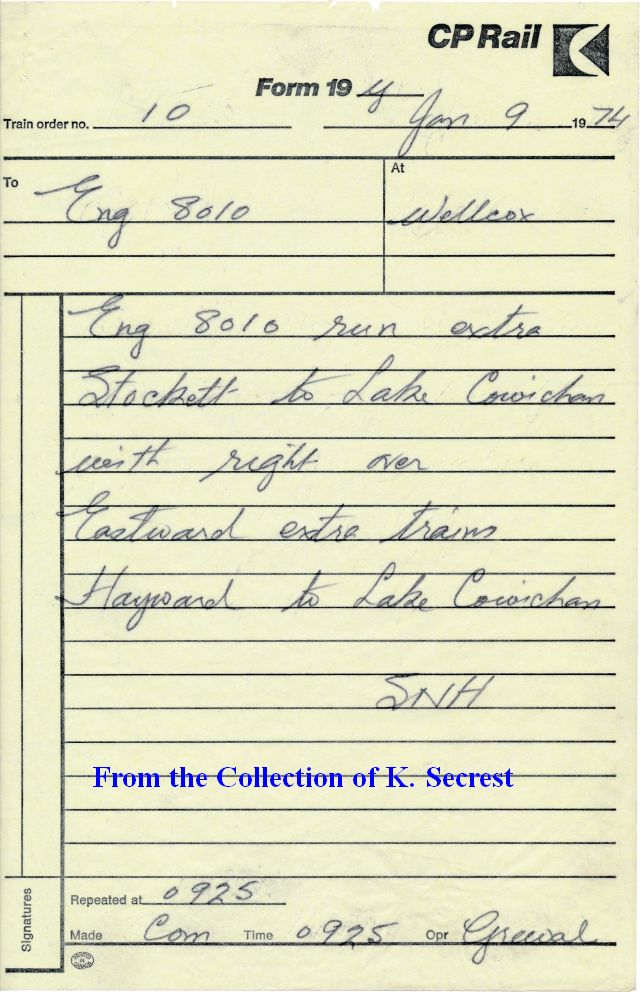 CP Rail
Form 19 Y
Train order no. 10 Jan 9 1974
To Eng 8010 At Wellcox
Eng 8010 run extra
Stockett to Lake Cowichan
with right over
Eastward extra trains
Hayward to Lake Cowichan
SNH
From the Collection of K. Secrest
Signatures
Repeated at 0925
Made Com Time 0925 Opr Grewal
PRINTED IN CANADA